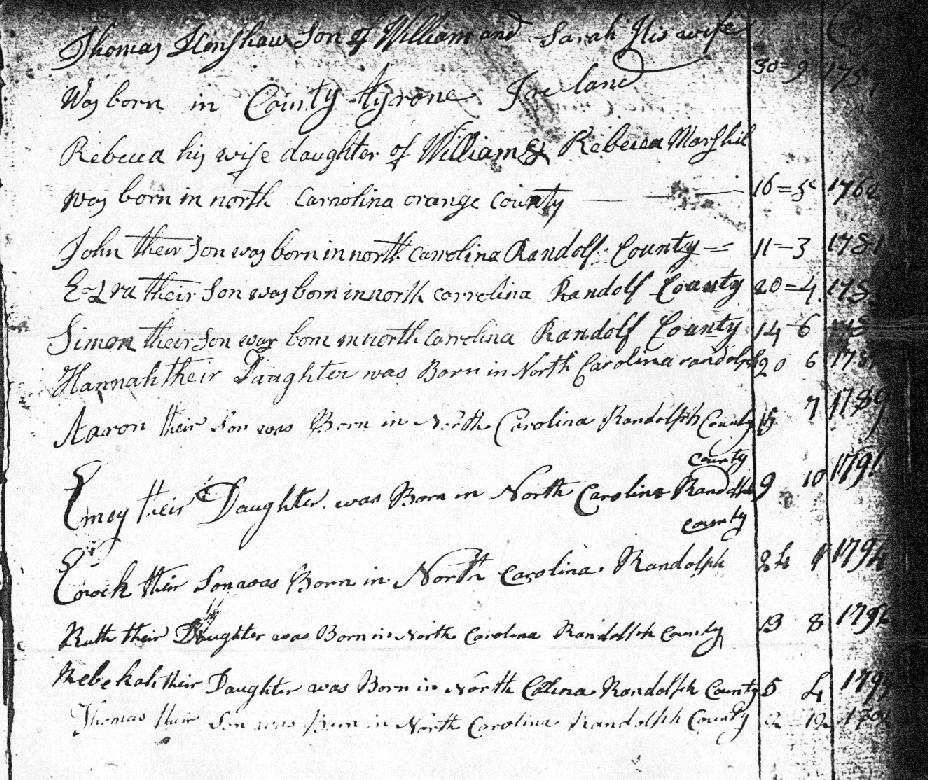 Thomas Hinshaw Son of William and Sarah His wife
Was born in County tyrone Ireland 30=9
Rebecca his wife daughter of William & Rebecca Marshil
was born in north Carrolina orange county 16=5 1762
John their Son was born in north carrolina Randolf County = 11-3 1781
Ezra their Son was born in north carrolina Randolf County 20=4
Simon their son was born in north carolina Randolf County 14-6
Hannah their Daughter was Born in North Carolina randolph 20 6
Aaron their Son was Born in North Carolina Randolph County 15 7 1789
county
Emey their Daughter was Born in North Carolina Randolph 9 10 1791
county
Enock their Son was Born in North Carolina Randolph 24 1794
Ruth their Daughter was Born in North Carolina Randolph County 13 8 1796
Rebekah their Daughter was Born in North Calina Randolph County 5 4
Thomas their Son was Born in North Carolina Randolph County 2 12